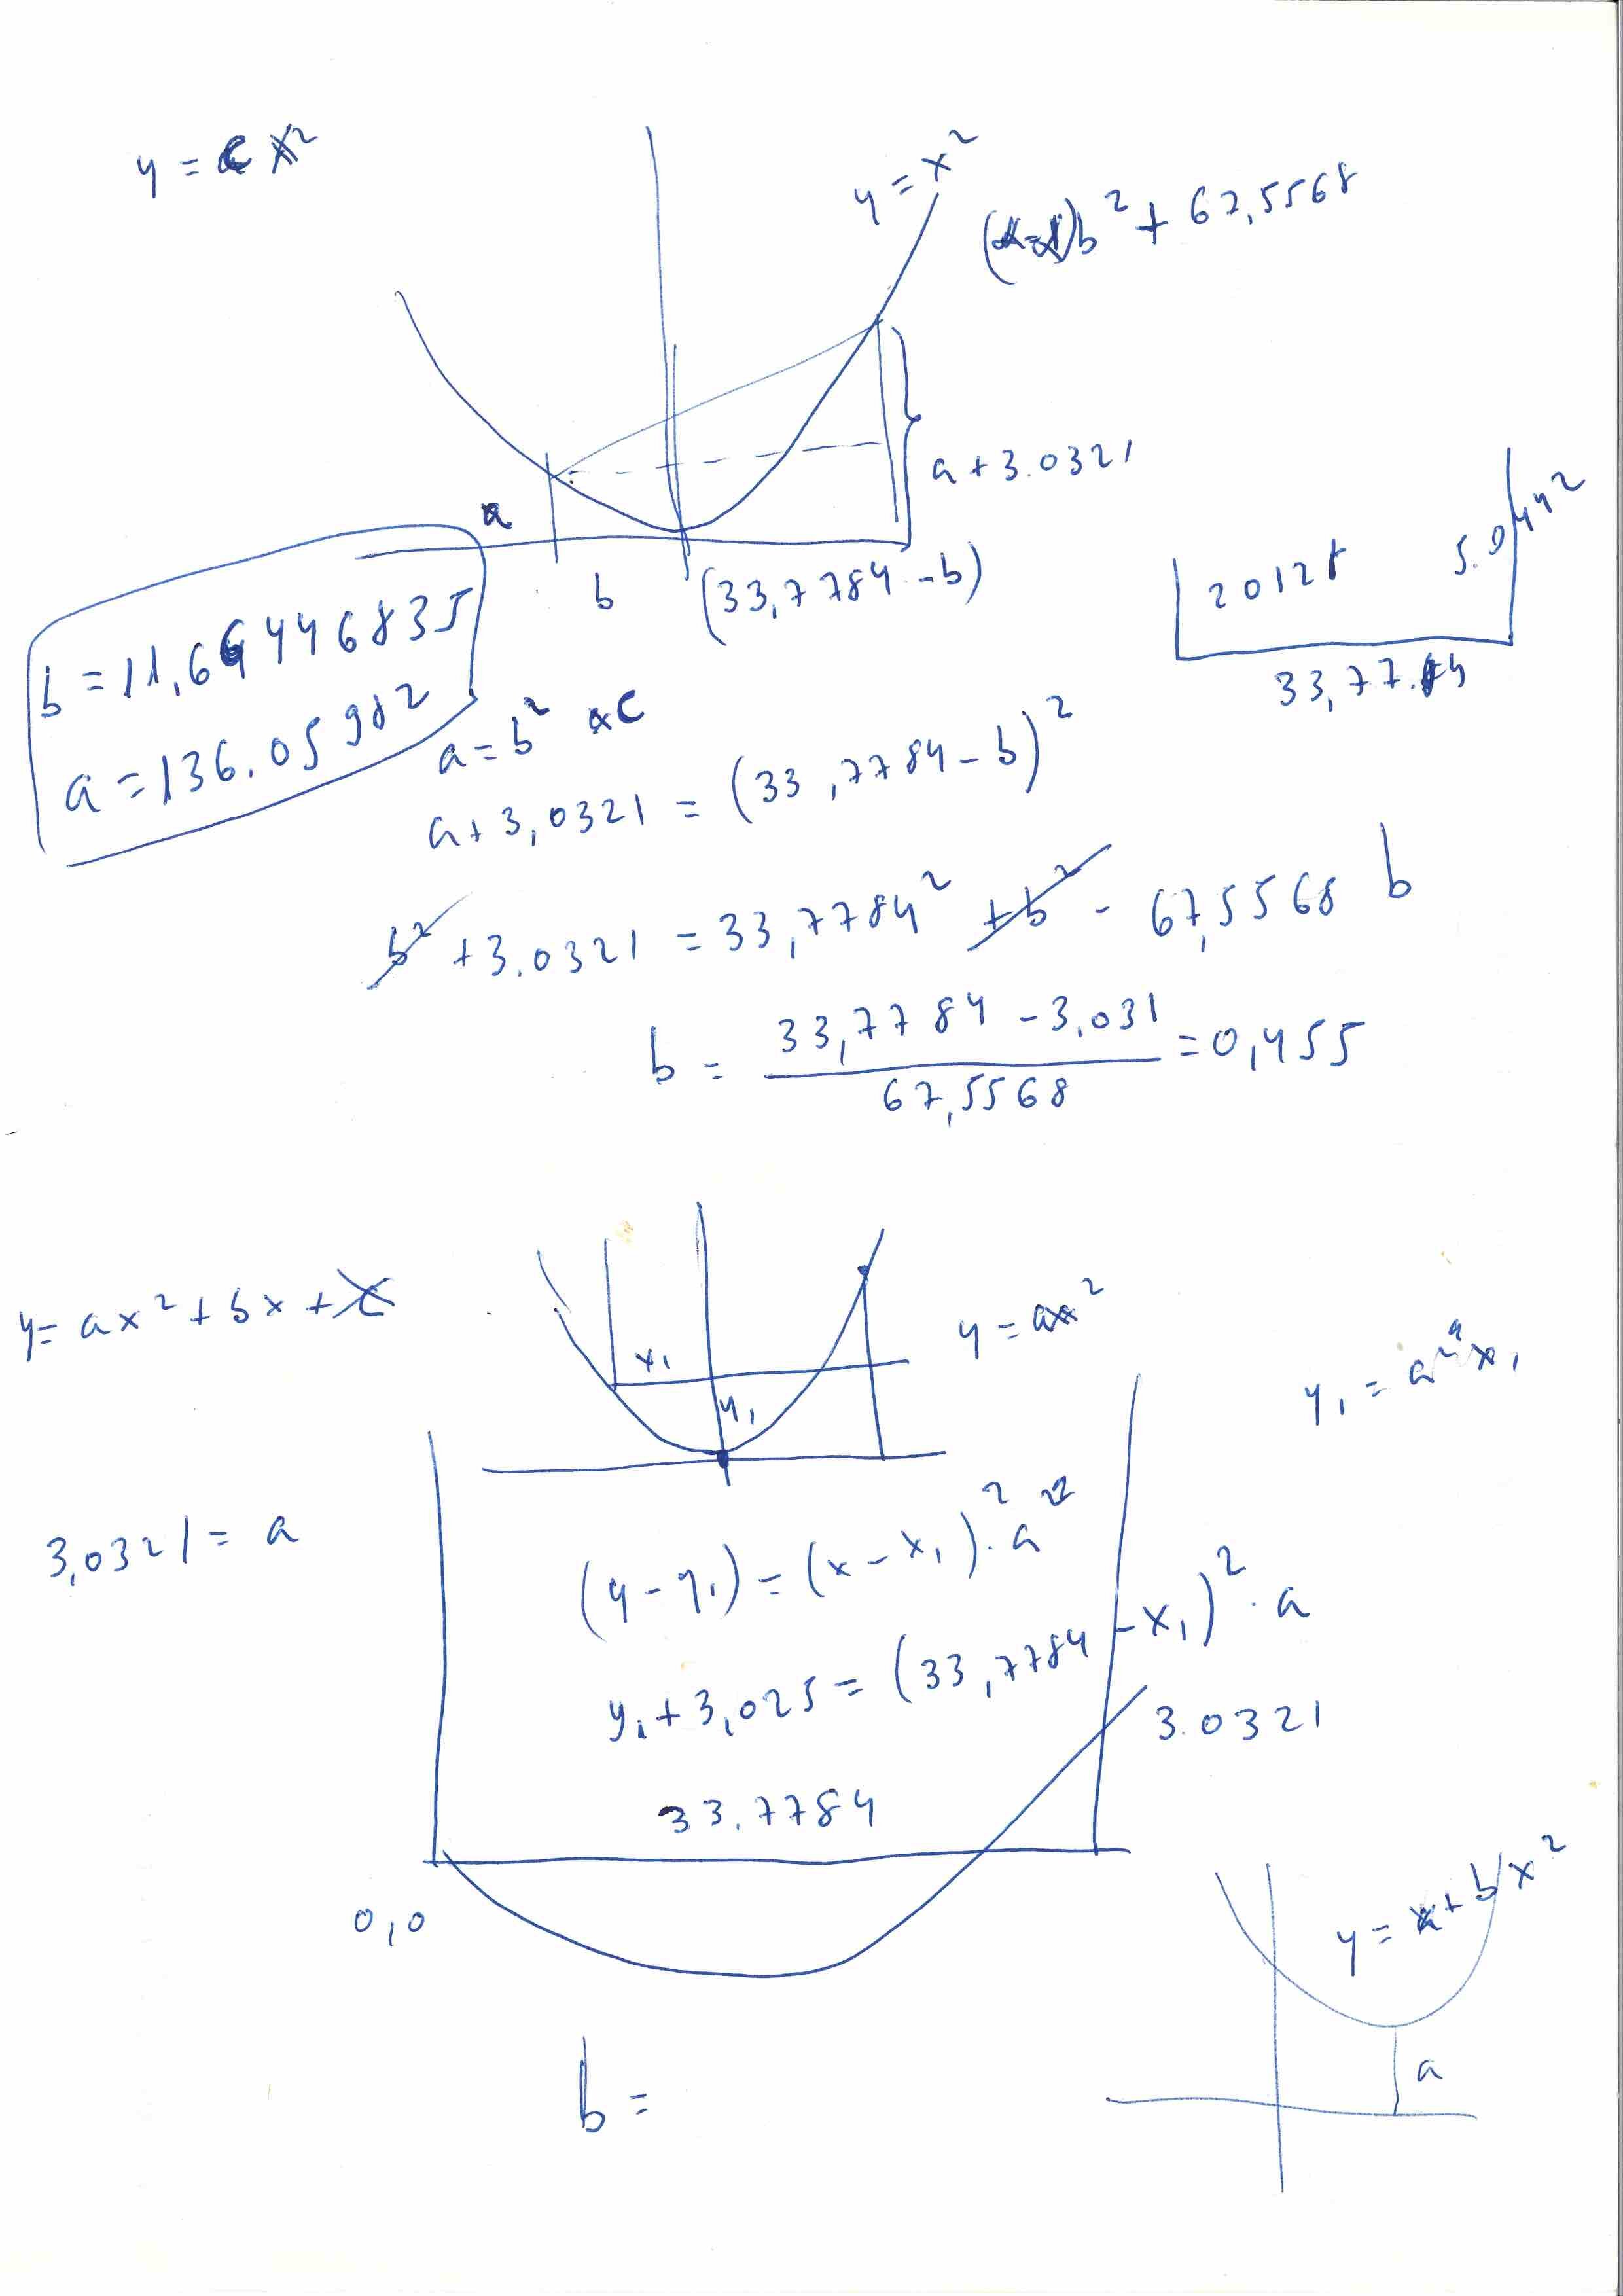 y = c x²
y = x²
b² + 67,5568
a + 3.0321
a
b
(33,7784 - b)
2.0128
5.0442
33,7784
b = 11,66446835
a = 136.05982
a = b² * c
a + 3,0321 = (33,7784 - b)²
b² + 3.0321 = 33,7784² + b² - 67,5568 b
b = (33,7784 - 3,031) / 67,5568 = 0,455
y = ax² + bx + c
x₁
y₁
y = ax²
3,0321 = a
(y - y₁) = (x - x₁)² · a
y₁ + 3,025 = (33,7784 - x₁)² · a
3.0321
33.7784
0,0
b =
a